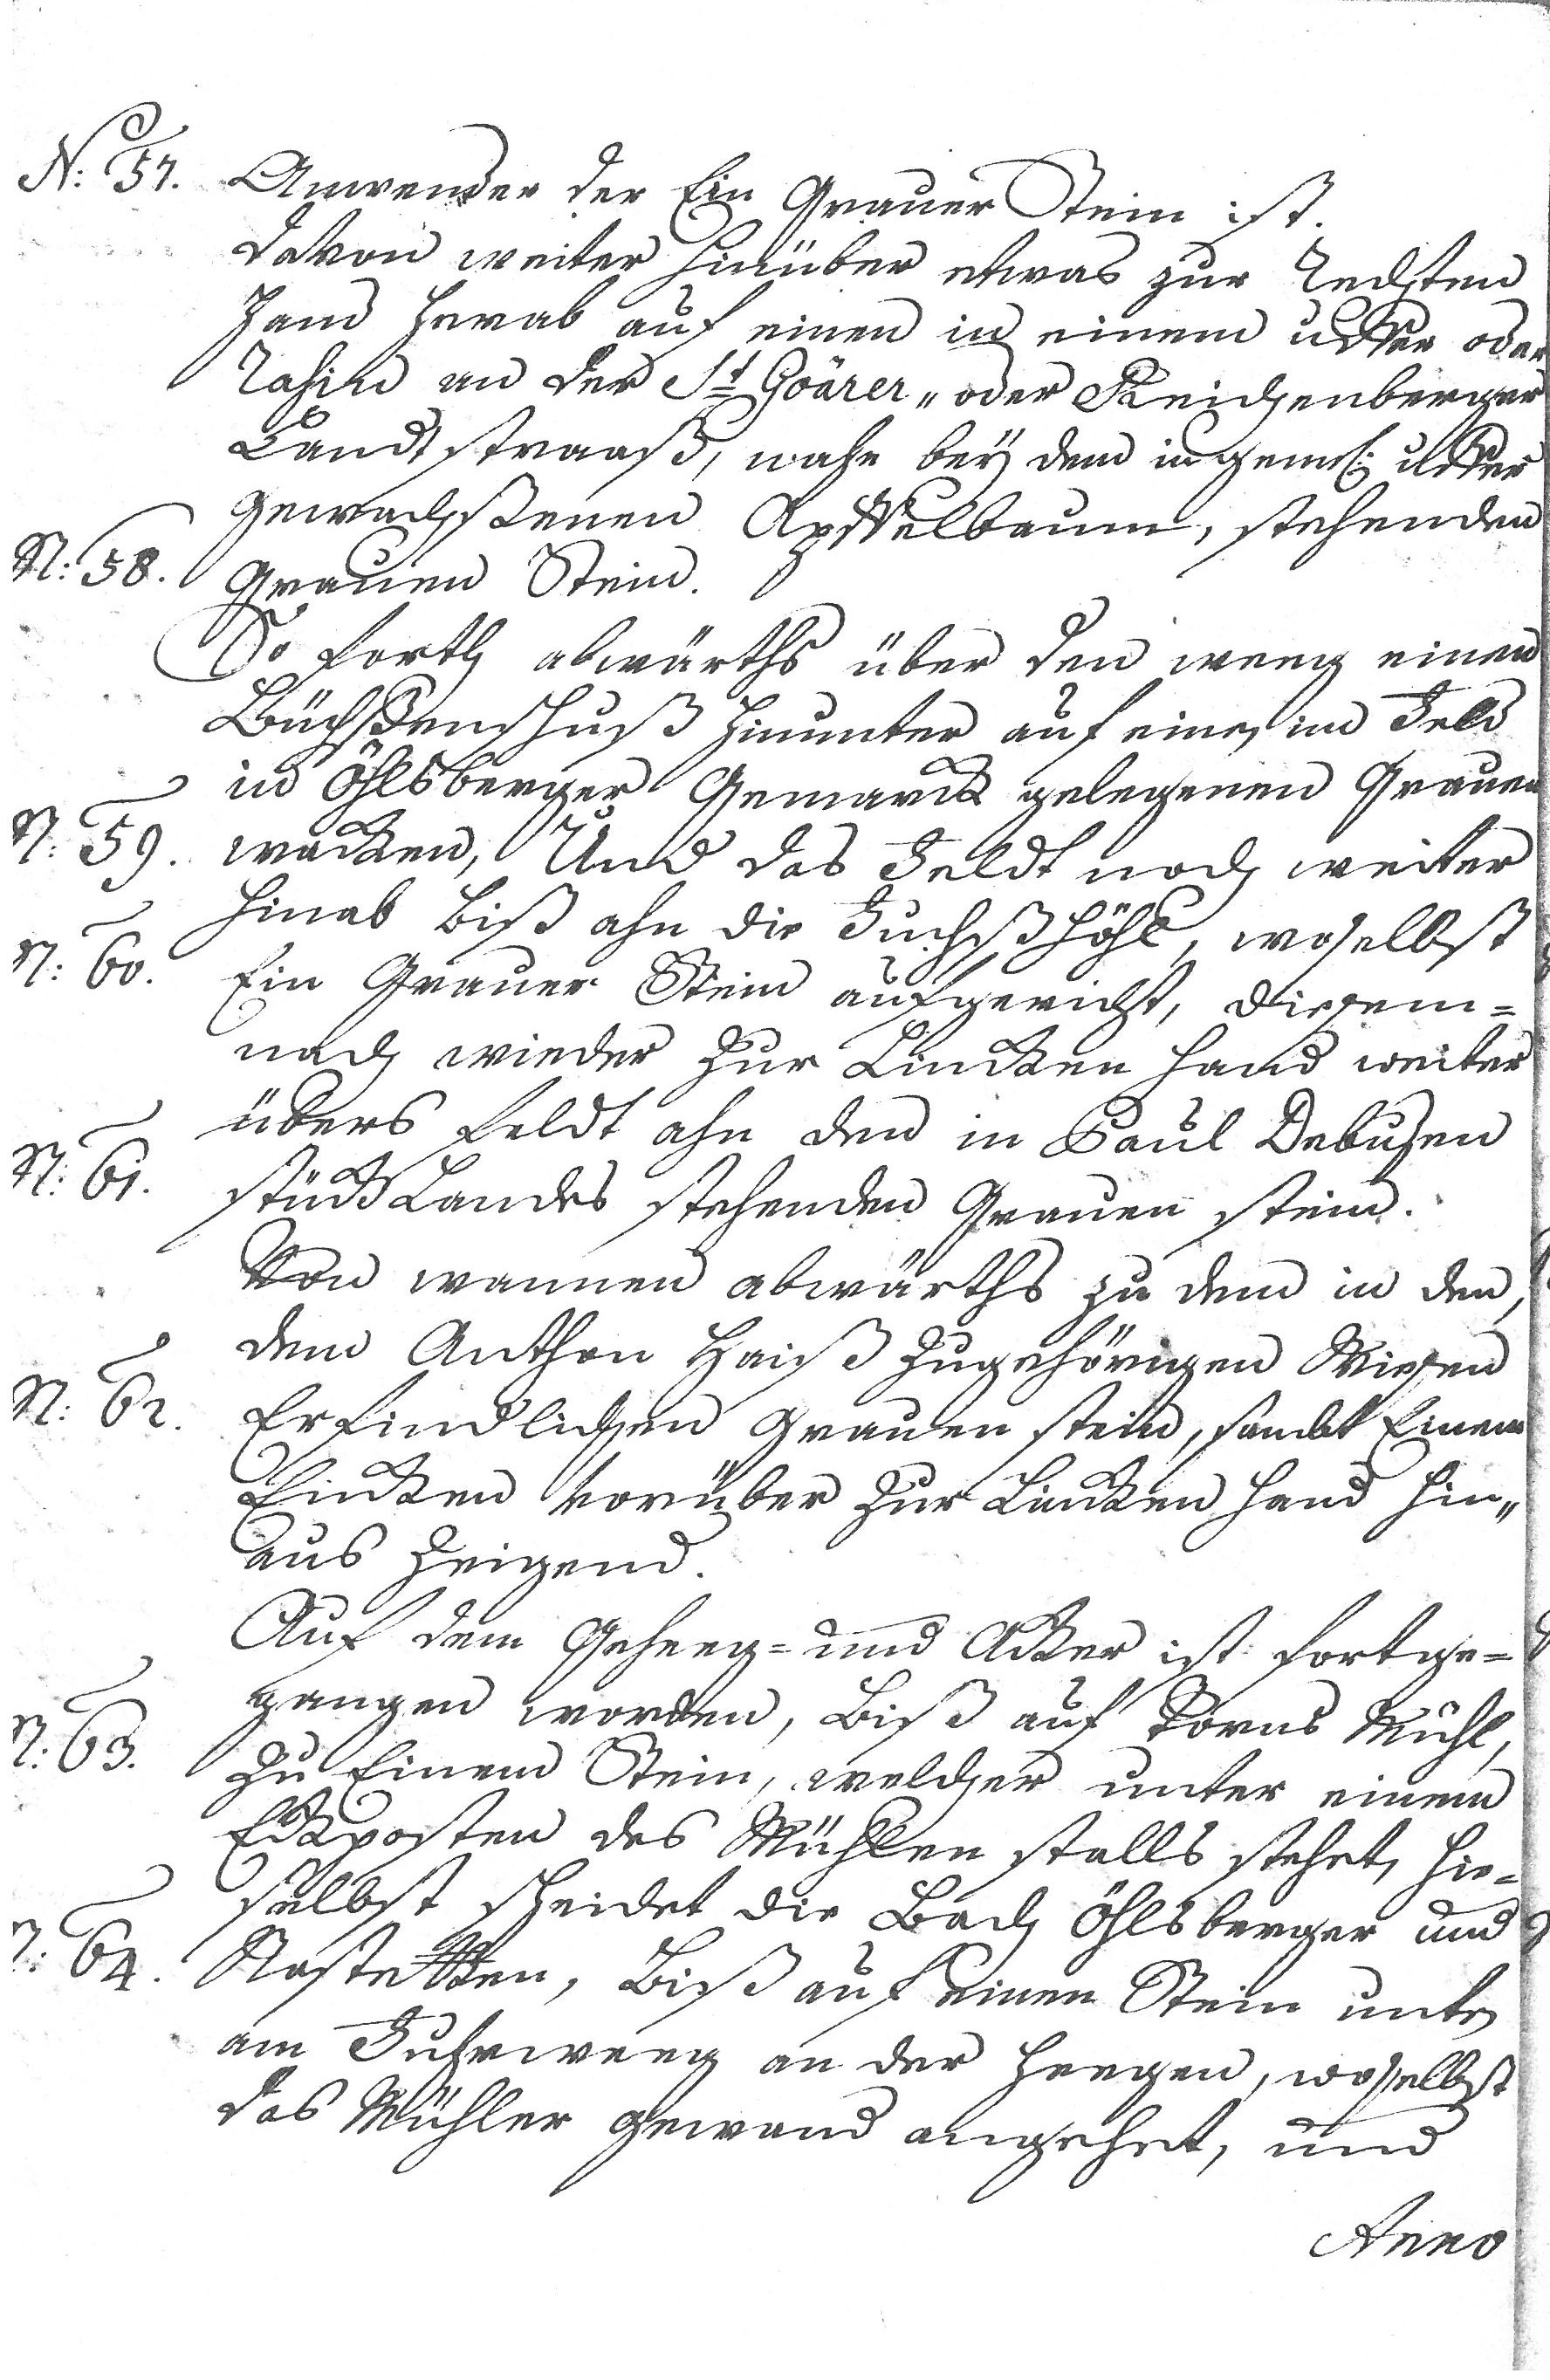 N: 57. Anwender der Ein Grauer Stein ist.
davon weiter hinüber etwas zur Rechten
Hand herab auf einen in einem ucker oder
Rahin an der St Goärer„ oder Reichenberger
Landtstraaß, nahe beÿ dem in gemel: ucker
gewachßenen Apffelbaum, stehenden
N: 58. Grauen Stein.
So forth abwärths über den weeg einen
Büchßenschuß hinunter auf einen im Feld
in Öhlsberger Gemarck gelegenen Grauen
N: 59. wacken, Und das Feldt noch weiter
hinab biß ahn die Fuchßhöhl, woselbst
N: 60. Ein Grauer Stein aufgericht, diesem=
nach wieder zur Lincken hand weiter
übers feldt ahn den in Paul Debußen
N: 61. stück Landes stehenden Grauen stein.
Von wannen abwärths zu dem in den,
dem Anthon Haiß zugehörigen Wiesen
N: 62. Erfindlichen grauen stein, sambt Einem
Eicken vorüber zur Lincken hand hin„
aus zeigend.
Auf dem Geheeg= und Acker ist fortge=
gangen worden, biß auf Mühl,
N: 63. zu Einem Stein, welcher unter einem
Eckposten des Mühlen stalls stehet, hie=
selbst scheidet die Bach Öhlsberger und
N: 64. Nastetten, biß auf einen Stein unten
am Fuhrweeg an der Heegen, woselbst
das Mühler gewand angehet, und
Anno